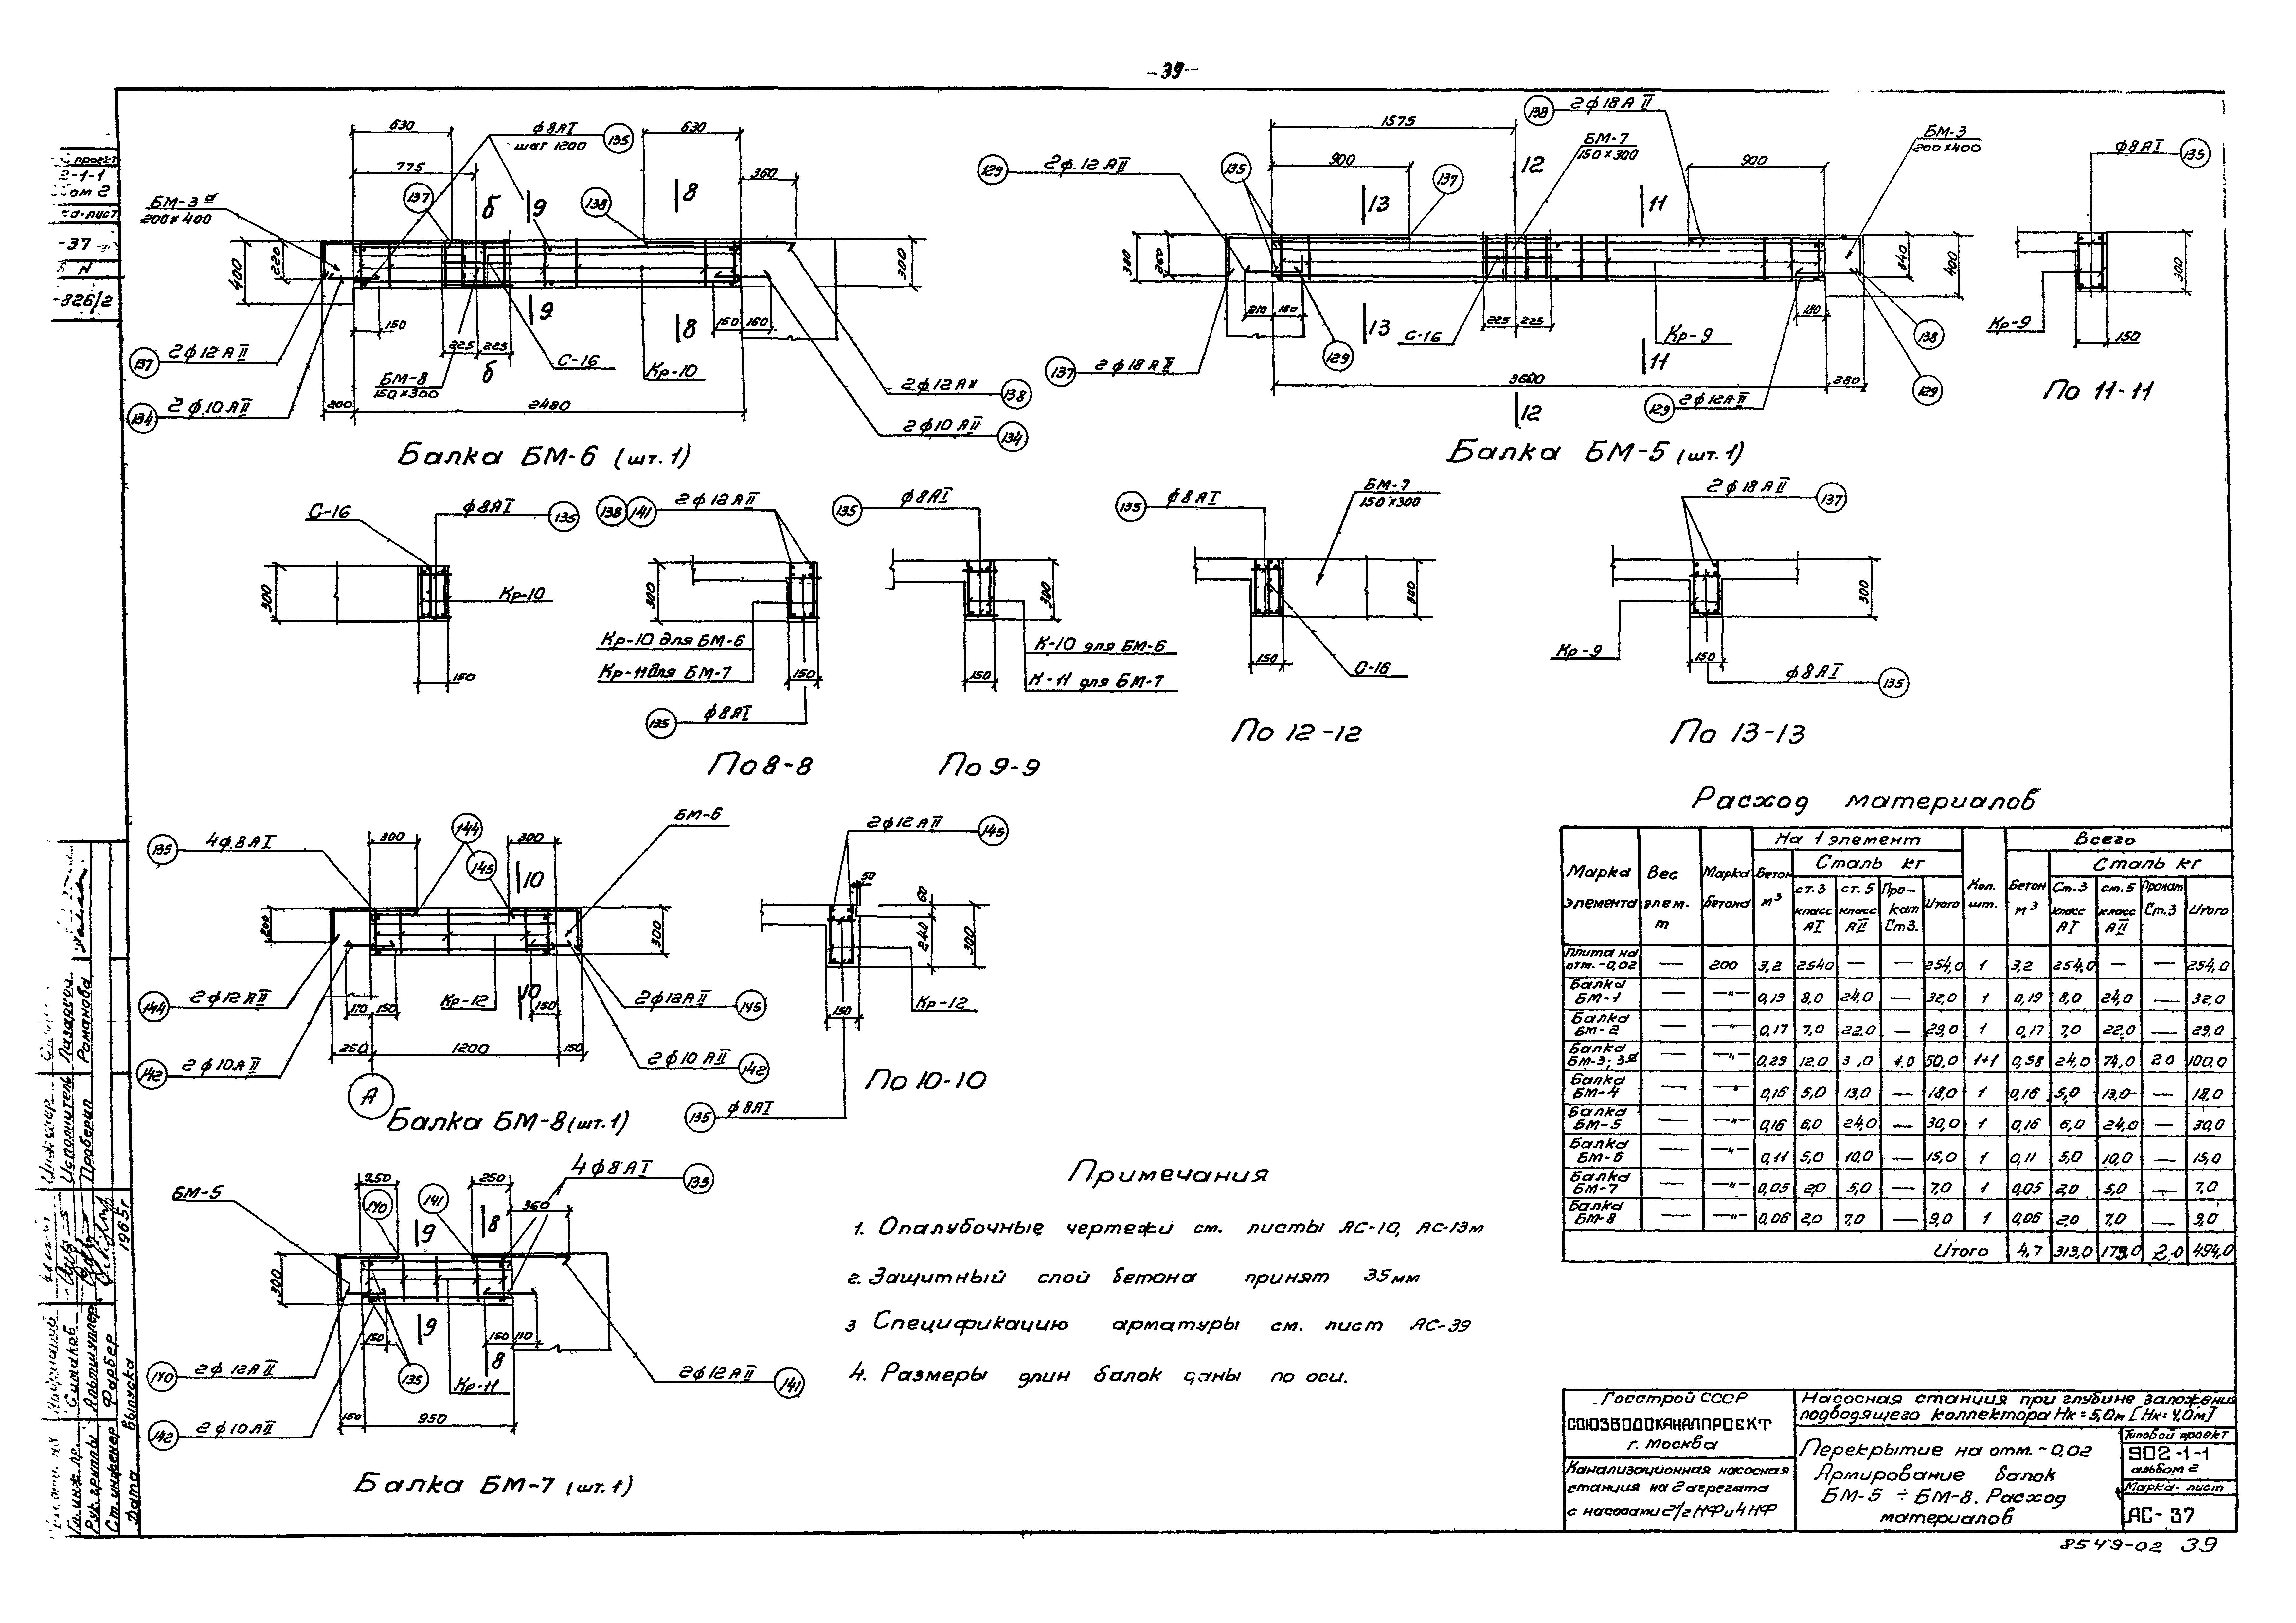 -39-
проект
2-1-1
ом 2
-37
N
-826/2
630
ф8АI
шаг 1200
135
630
775
360
БМ-3а
200×400
137
б
9
138
8
400
220
300
150
9
8
150 160
225 225
С-16
Кр-10
137
2ф12АII
БМ-8
150×300
б
134
2ф10АII
200
2480
138
2ф10АII
134
Балка БМ-6 (шт.1)
138
2ф18АII
1575
БМ-7
150×300
БМ-3
200×400
129
2ф.12АII
135
900
12
900
137
13
11
380
260
340
400
210 150
13
225 225
С-16
Кр-9
180
138
129
137
2ф18АII
11
129
3600
280
12
129
2ф12АII
Балка БМ-5 (шт.1)
ф8АI
135
300
Кр-9
150
По 11-11
С-16
ф8АI
135
300
Кр-10
150
138
141
2ф12АII
300
Кр-10 для БМ-6
Кр-11 для БМ-7
150
135
ф8АI
По 8-8
135
ф8АI
300
К-10 для БМ-6
К-11 для БМ-7
150
По 9-9
135
ф8АI
БМ-7
150×300
300
150
С-16
По 12-12
2ф18АII
137
300
Кр-9
150
ф8АI
135
По 13-13
135
4ф.8АI
300
144
145
300
БМ-6
10
200
300
144
2ф12АII
170 150
Кр-12
10
150
2ф12АII
145
260
1200
150
142
2ф10АII
2ф10АII
142
А
Балка БМ-8 (шт.1)
2ф12АII
145
50
60
240
300
150
Кр-12
По 10-10
135
ф8АI
БМ-5
250
140
141
250
4ф8АI
135
360
9
8
300
9
150
150 110
8
140
2ф12АII
135
Кр-11
2ф12АII
141
150
950
142
2ф10АII
Балка БМ-7 (шт.1)
Примечания
1. Опалубочные чертежи см. листы АС-10, АС-13м
2. Защитный слой бетона принят 35мм
3 Спецификацию арматуры см. лист АС-39
4. Размеры длин балок даны по оси.
Расход материалов
Марка элемента
Вес элем. т
Марка бетона
На 1 элемент
Бетон м3
Сталь кг
ст.3 класс АI
ст.5 класс АII
Прокат Ст3.
Итого
Кол. шт.
Всего
Бетон м3
Сталь кг
Ст.3 класс АI
ст.5 класс АII
Прокат Ст.3
Итого
Плита на отм.-0,02 — 200 3,2 2540 — — 254,0 1 3,2 254,0 — — 254,0
Балка БМ-1 — —"— 0,19 8,0 24,0 — 32,0 1 0,19 8,0 24,0 — 32,0
Балка БМ-2 — —"— 0,17 7,0 22,0 — 29,0 1 0,17 7,0 22,0 — 29,0
Балка БМ-3; 3а — —"— 0,29 12,0 3 ,0 1.0 50,0 1+1 0,58 24,0 74,0 2 0 100,0
Балка БМ-4 — " 0,16 5,0 13,0 — 18,0 1 0,16 5,0 13,0 — 18,0
Балка БМ-5 — —"— 0,16 6,0 24,0 — 30,0 1 0,16 6,0 24,0 — 30,0
Балка БМ-6 — —"— 0,11 5,0 10,0 — 15,0 1 0,11 5,0 10,0 — 15,0
Балка БМ-7 — —"— 0,05 2,0 5,0 — 7,0 1 0,05 2,0 5,0 — 7,0
Балка БМ-8 — —"— 0,06 2,0 7,0 — 9,0 1 0,06 2,0 7,0 — 9,0
Итого 4,7 313,0 179,0 2,0 494,0
Госстрой СССР
СОЮЗВОДОКАНАЛПРОЕКТ
г. Москва
Канализационная насосная
станция на 2 агрегата
с насосами 2½НФ и 4НФ
Насосная станция при глубине заложения
подводящего коллектора Нк=5,0м [Нк=4,0м]
Перекрытие на отм.-0,02
Армирование балок
БМ-5 ÷ БМ-8. Расход
материалов
Типовой проект
902-1-1
альбом 2
Марка-лист
АС-37
8549-02 39
Гл. инж. пр.
Симаков
Рук. группы
Альтшуллер
Ст. инженер
Фарбер
Дата выпуска
1965г
Исполнитель
Лазарева
Проверил
Романова